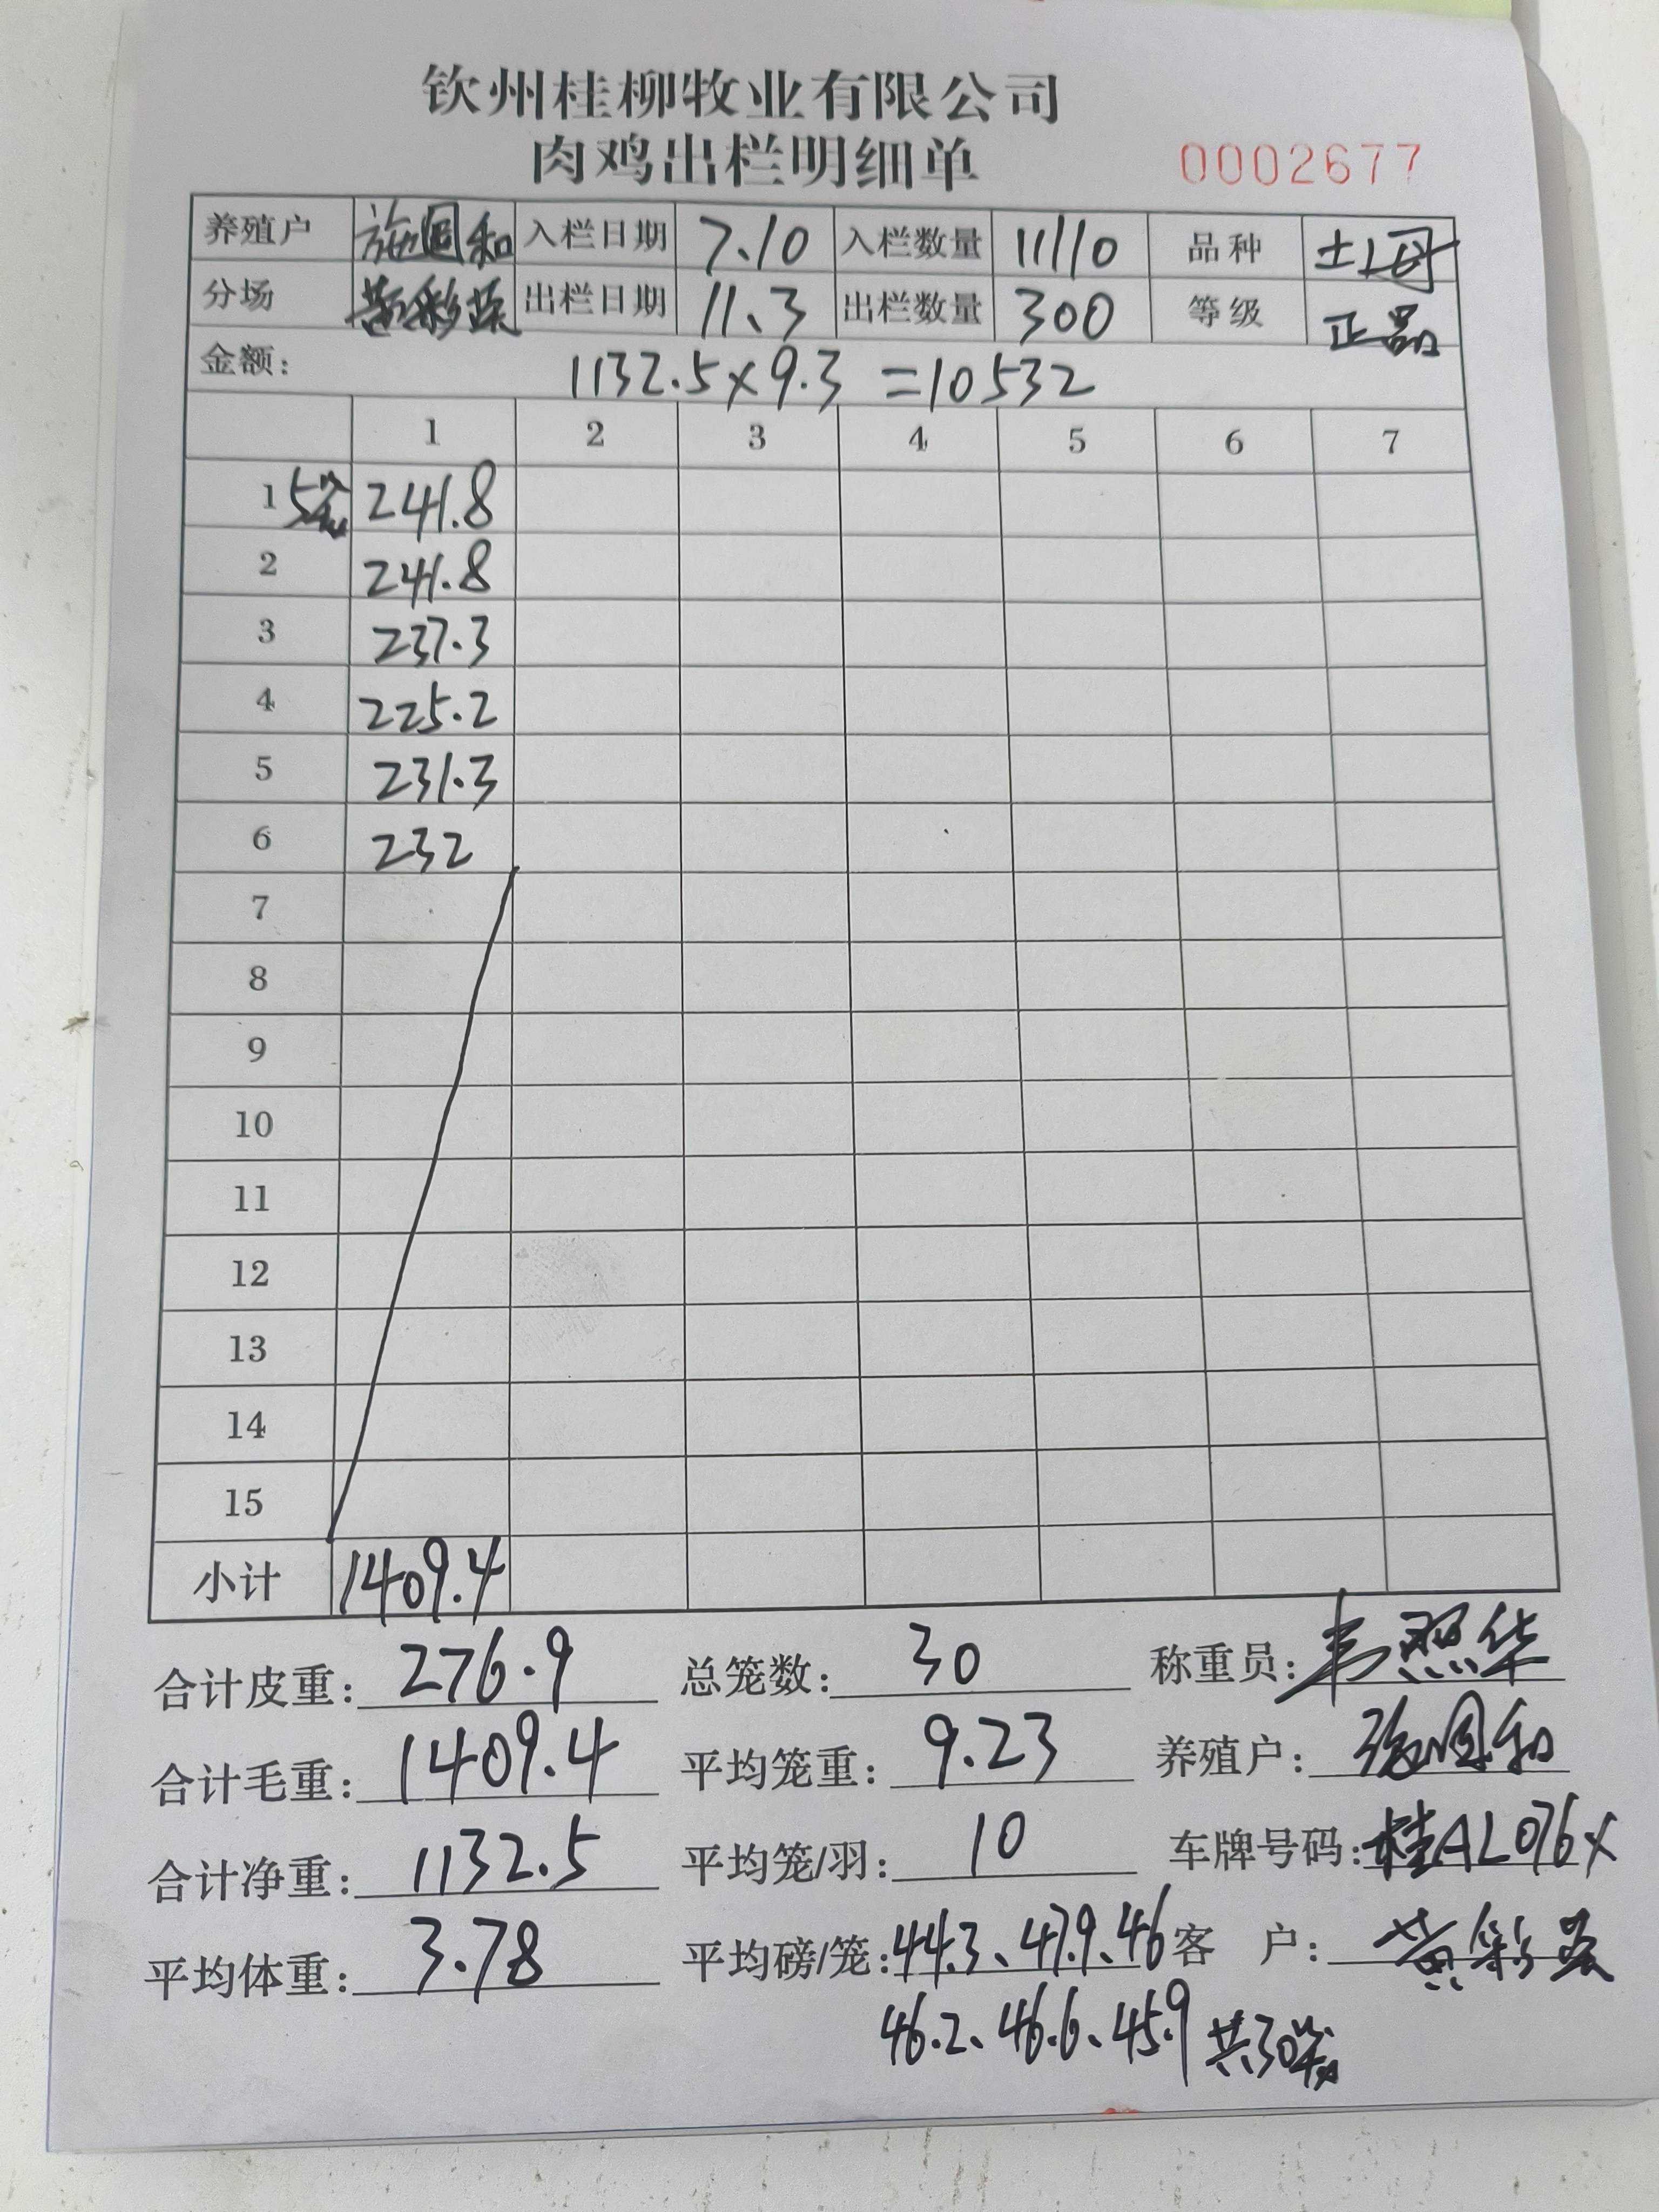 钦州桂柳牧业有限公司
肉鸡出栏明细单 0002677
养殖户 施国和 入栏日期 7.10 入栏数量 11110 品种 土母
分场 黄彩 出栏日期 11.3 出栏数量 300 等级 正品
金额: 1132.5×9.3 =10532
1 2 3 4 5 6 7
1 5笼 241.8
2 241.8
3 237.3
4 225.2
5 231.3
6 232
7
8
9
10
11
12
13
14
15
小计 1409.4
合计皮重: 276.9 总笼数: 30 称重员: 韦照华
合计毛重: 1409.4 平均笼重: 9.23 养殖户: 施国和
合计净重: 1132.5 平均笼/羽: 10 车牌号码: 桂AL076X
平均体重: 3.78 平均磅/笼: 44.3、47.9、46 客 户: 黄彩
46.2、46.6、45.9 共30笼